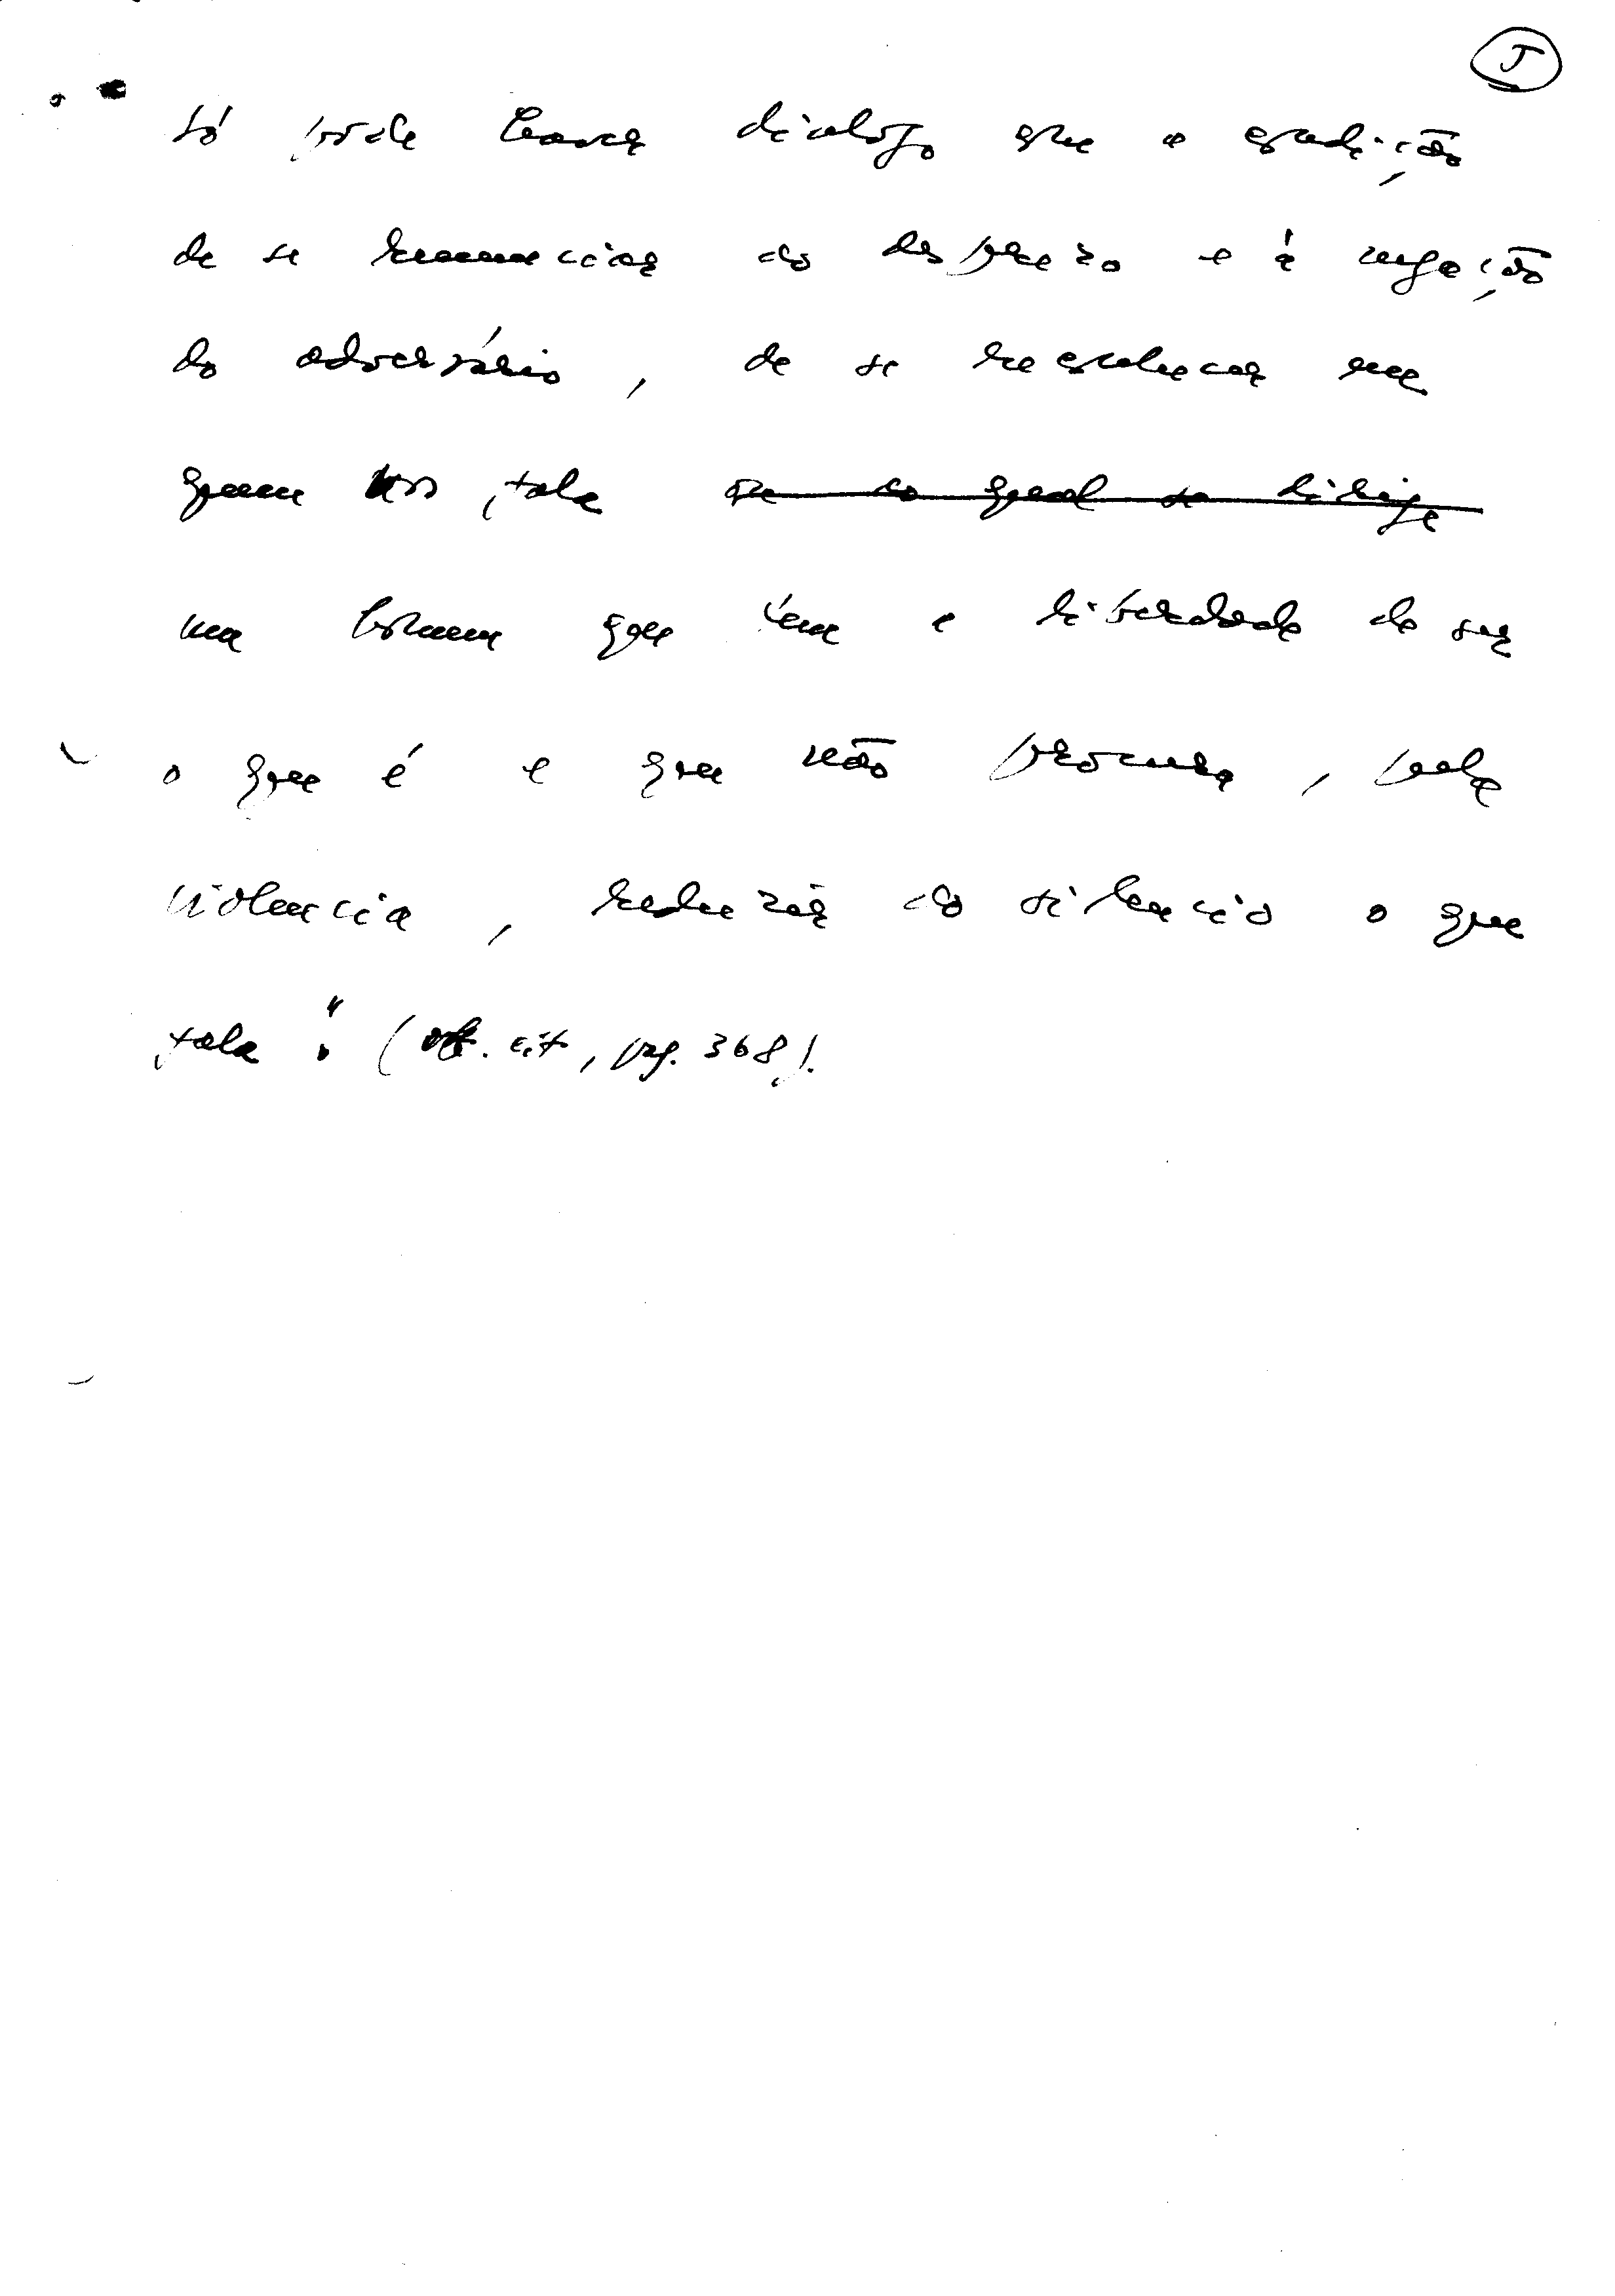 5
só pode haver dialogo sob a condição
de se renunciar ao desprezo e à negação
do adversário, de se reconhecer em
quem nos fala ou ao qual se dirige
um homem que tem a liberdade de ser
o que é e que não procura, pela
violencia, reduzir ao silencio o que
fala". (ob. cit, pag. 368).